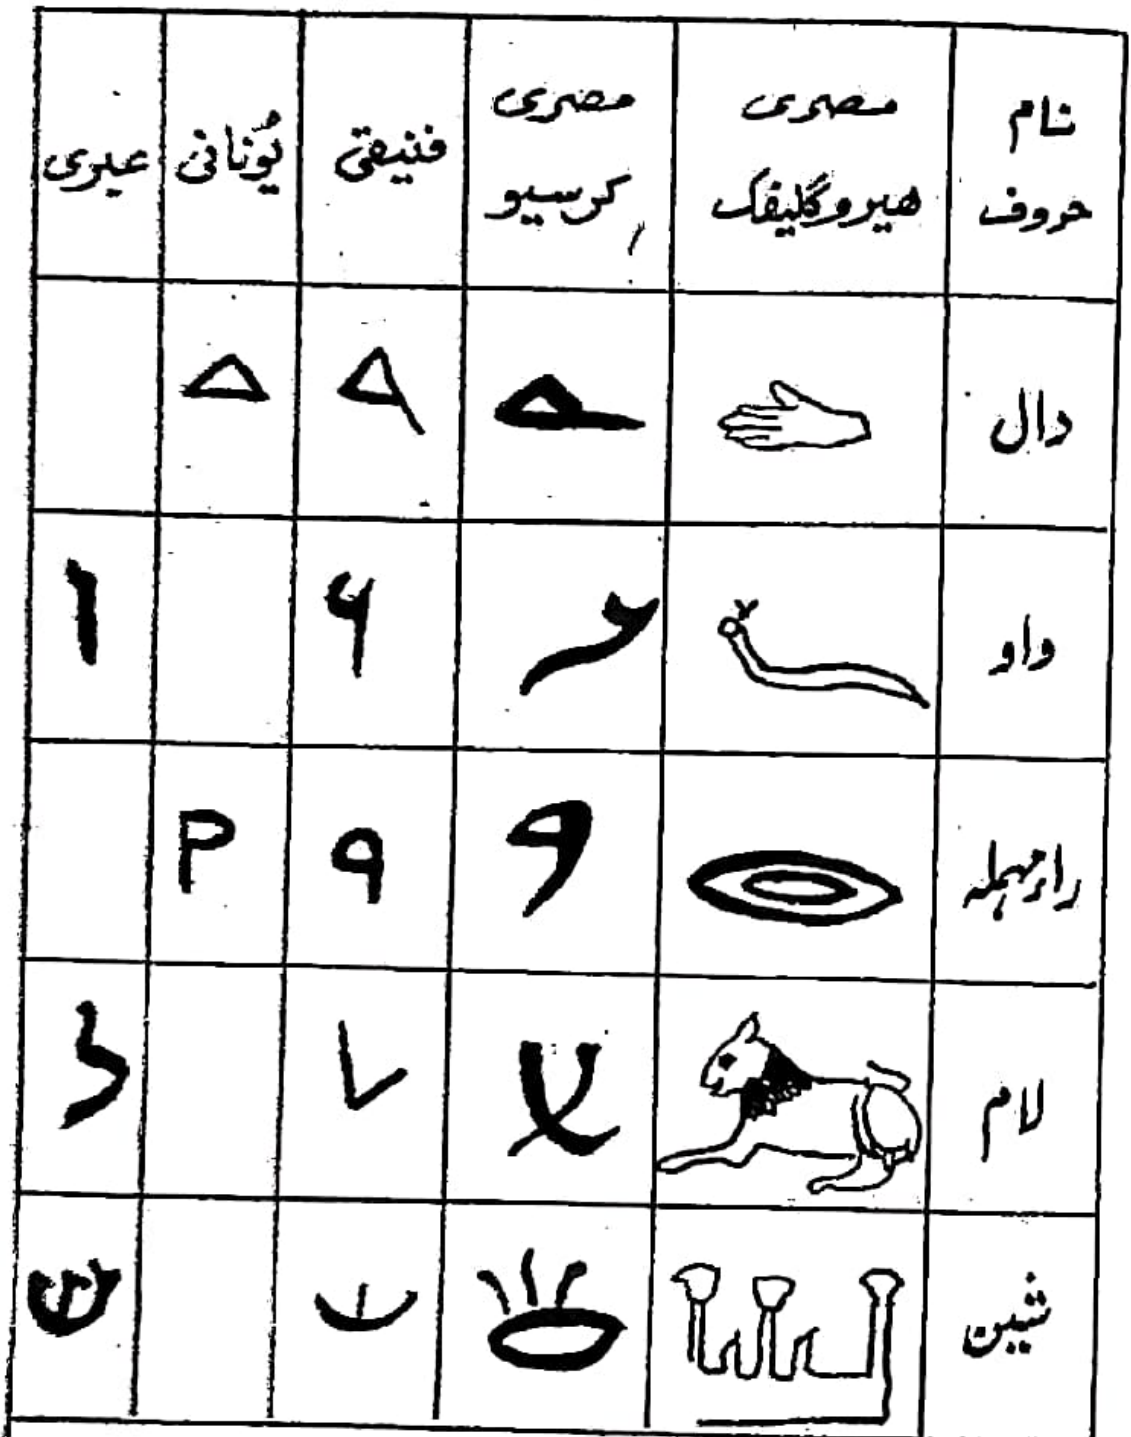 نام حروف	مصری ھیروگلیفک	مصری کرسیو	فنیقی	یُونانی	عبری
دال	Δ
واو
راء مہملہ	P
لام
شین